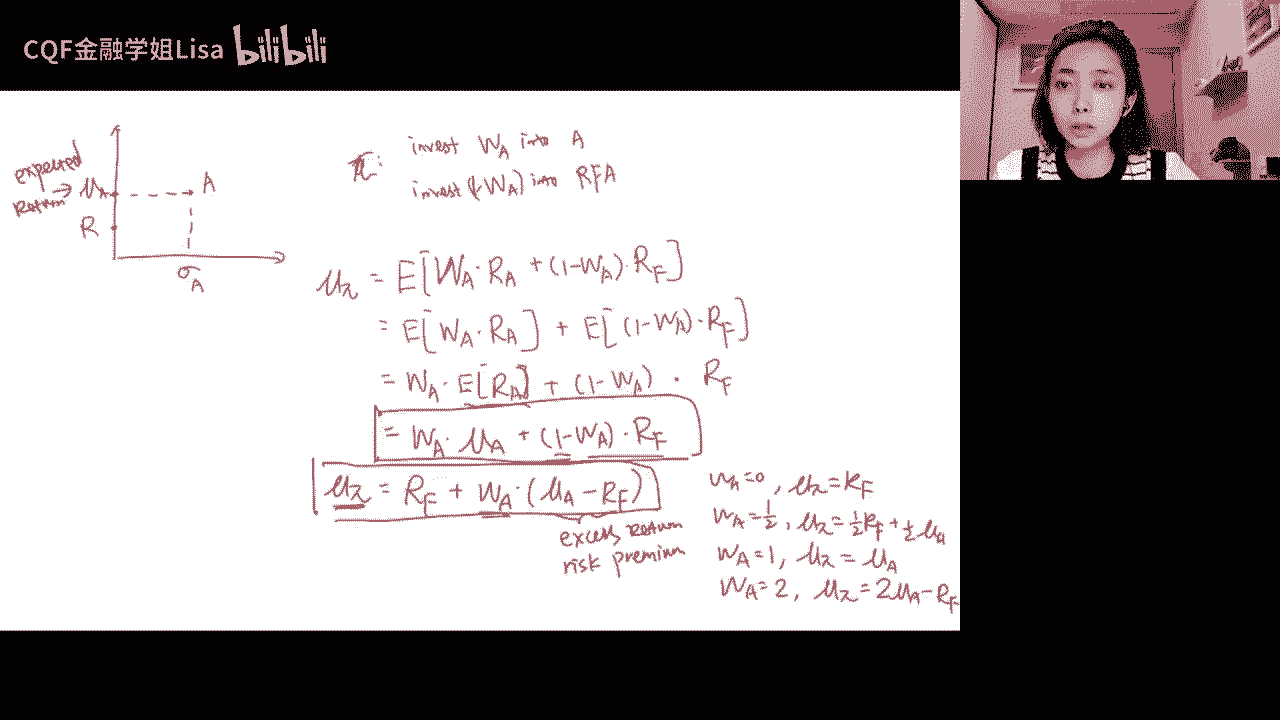 CQF金融学姐Lisa bilibili
expected
Return → μ_A
A
R
σ_A
π: invest W_A into A
invest (1-W_A) into RFA
μ_π = E[W_A·R_A + (1-W_A)·R_F]
= E[W_A·R_A] + E[(1-W_A)·R_F]
= W_A·E[R_A] + (1-W_A)·R_F
= W_A·μ_A + (1-W_A)·R_F
μ_π = R_F + W_A·(μ_A-R_F)
excess Return
risk premium
W_A=0, μ_π=R_F
W_A=1/2, μ_π=1/2R_F+1/2μ_A
W_A=1, μ_π=μ_A
W_A=2, μ_π=2μ_A-R_F